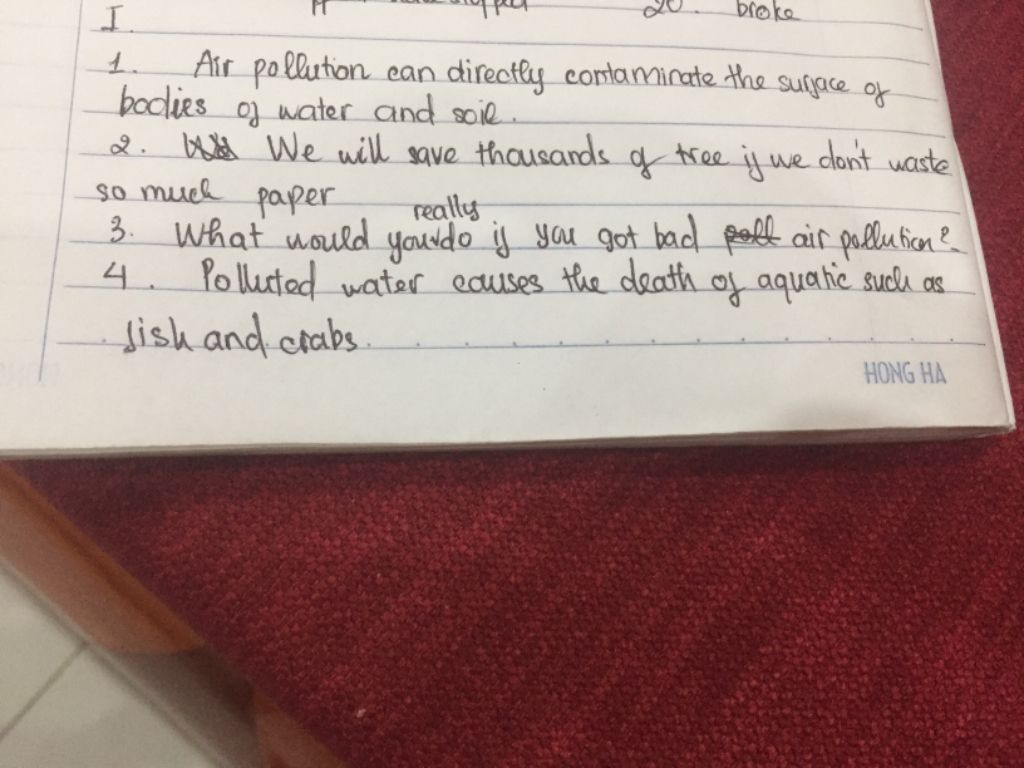 20. broke
I.
1. Air pollution can directly contaminate the surface of
bodies of water and soil.
2. We will save thousands of tree if we don't waste
so much paper
really
3. What would you do if you got bad air pollution?
4. Polluted water causes the death of aquatic such as
fish and crabs.
HONG HA